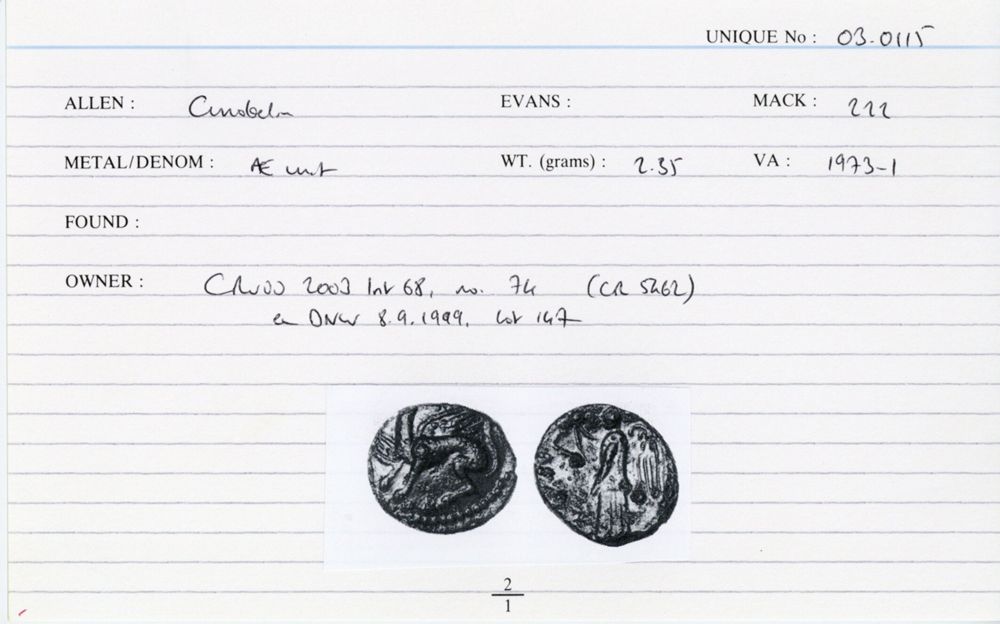 UNIQUE No : 03.0115
ALLEN : Cunobelin EVANS : MACK : 222
METAL/DENOM : Æ unit WT. (grams) : 2.35 VA : 1973-1
FOUND :
OWNER : 2003 list 68, no. 74 (CR 5462)
ex DNW 8.9.1999, lot 147
2
1